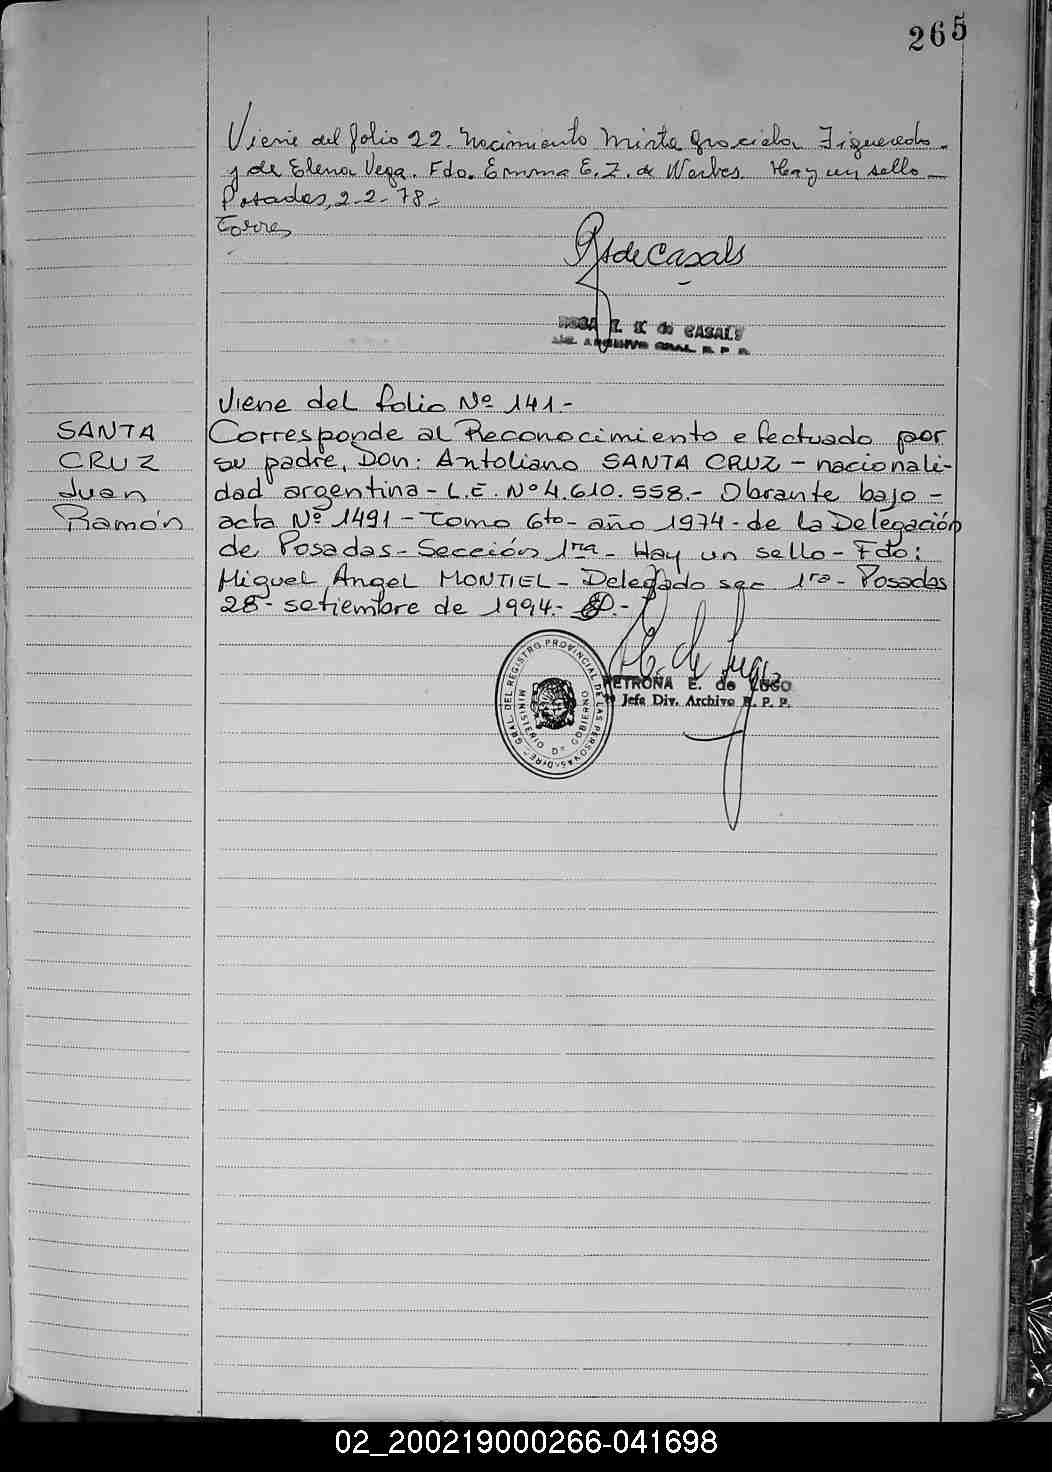 265
Viene del folio 22. Nacimiento Mirta Graciela Figueredo.
y de Elena Vega. Fdo. Emma E. Z. de Werbes. Hay un sello
Posadas, 2-2-78.
Torres
RS de Casals
ROSA T. S. de CASALS
ARCHIVO GRAL. R. P. P.
Viene del folio Nº 141-
SANTA
CRUZ
Juan
Ramón
Corresponde al Reconocimiento efectuado por
su padre, Don: Antoliano SANTA CRUZ - nacionali-
dad argentina - L.E. Nº 4.610.558.- Obrante bajo -
acta Nº 1491 - Tomo 6to - año 1974 - de la Delegación
de Posadas - Sección 1ra - Hay un sello - Fdo:
Miguel Angel MONTIEL - Delegado sec 1ra - Posadas
28 - setiembre de 1994.-
de Lugo
PETRONA E. de LUGO
Jefa Div. Archivo R. P. P.
DIREC. GRAL. DEL REGISTRO PROVINCIAL DE LAS PERSONAS
MINISTERIO Dº GOBIERNO
02_200219000266-041698